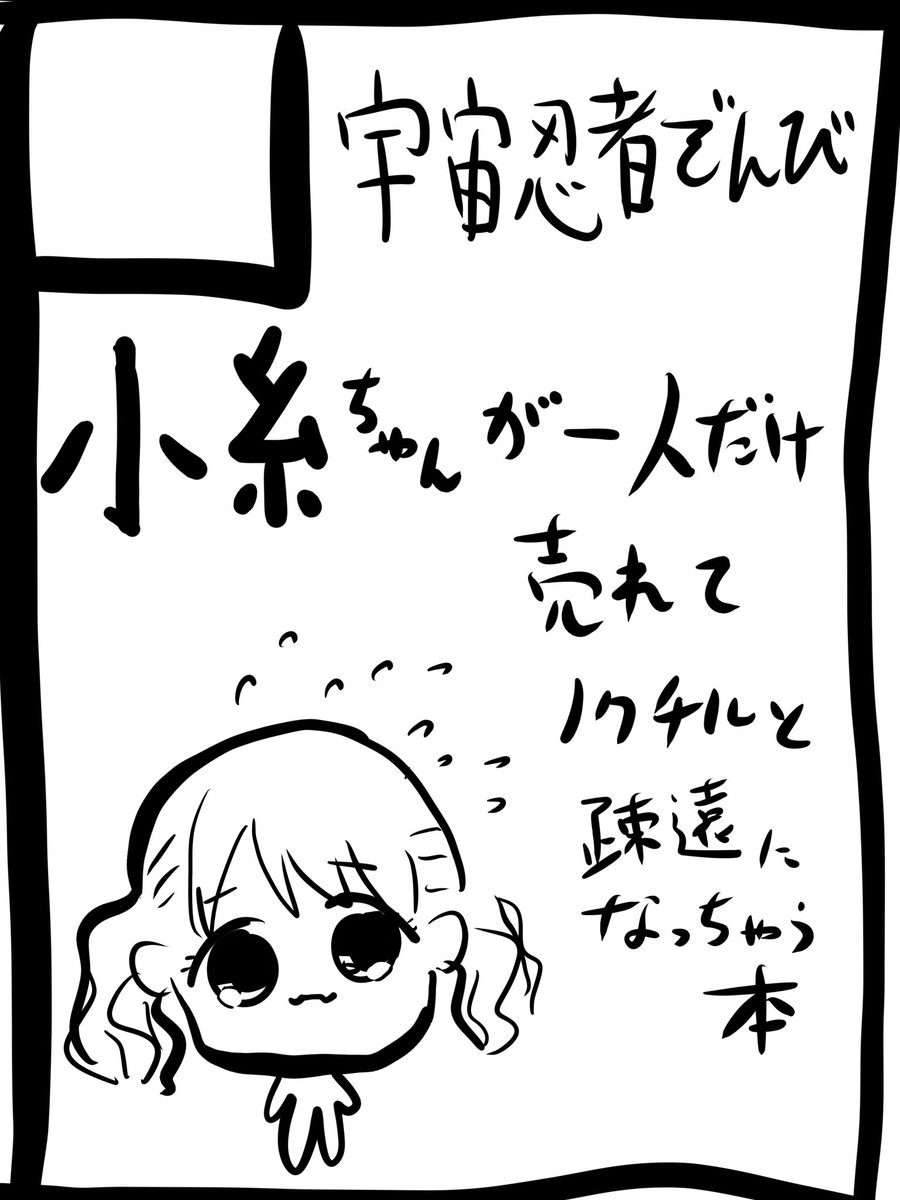 宇宙忍者でんび
小糸ちゃんが一人だけ
売れて
ノクチルと
疎遠に
なっちゃう
本